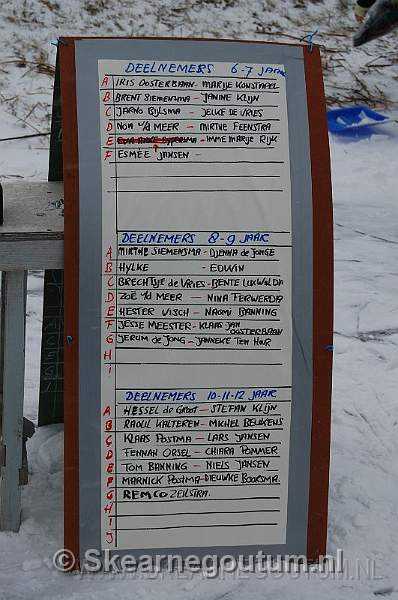 DEELNEMERS 6-7 JAAR
A IRIS OOSTERBAAN - MARIJE KONSTAPEL
B BRENT SIEMENSMA - JANINE KLIJN
C JARNO BIJLSMA - JELKE DE VRIES
D NOA v/d MEER - MIRTHE FEENSTRA
E - IMME MARIJE RIJK
F ESMEE JANSEN -
DEELNEMERS 8-9 JAAR
A MIRTHE SIEMENSMA - DJENNA de JONGE
B HYLKE - EDWIN
C BRECHTJE de VRIES - BENTE
D ZOË v/d MEER - NINA FERWERDA
E HESTER VISCH - NAOMI BANNING
F JESSE MEESTER - KLAAS JAN OOSTERBAAN
G JEROM de JONG - JANNEKE TEN HOUR
H
I
DEELNEMERS 10-11-12 JAAR
A HESSEL de GROOT - STEFAN KLIJN
B RAOUL KALTEREN - MICHEL BEUKENS
C KLAAS POSTMA - LARS JANSEN
D FENNAH ORSEL - CHIARA POMMER
E TOM BANNING - NIELS JANSEN
F MARNICK POSTMA - DIEUWKE BOORSMA
G REMCO ZEILSTRA
H
I
J
© Skearnegoutum.nl